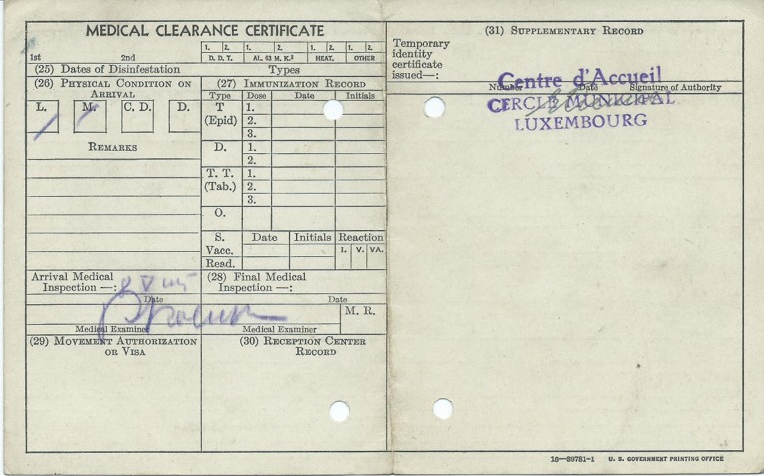 MEDICAL CLEARANCE CERTIFICATE
1st 2nd
1. 2. 1. 2. 1. 2. 1. 2.
D. D. T. AL. 63 M. K.³ HEAT. OTHER
(25) Dates of Disinfestation Types
(26) Physical Condition on
Arrival
L. M. C. D. D.
Remarks
(27) Immunization Record
Type Dose Date Initials
T 1.
(Epid) 2.
3.
D. 1.
2.
T. T. 1.
(Tab.) 2.
3.
O.
S. Date Initials Reaction
Vacc. I. V. VA.
Read.
Arrival Medical
Inspection —:
Date
Medical Examiner
(28) Final Medical
Inspection —:
Date
M. R.
Medical Examiner
(29) Movement Authorization
or Visa
(30) Reception Center
Record
(31) Supplementary Record
Temporary
identity
certificate
issued—:
Number Date Signature of Authority
Centre d'Accueil
CERCLE MUNICIPAL
LUXEMBOURG
16—39781-1 U. S. GOVERNMENT PRINTING OFFICE